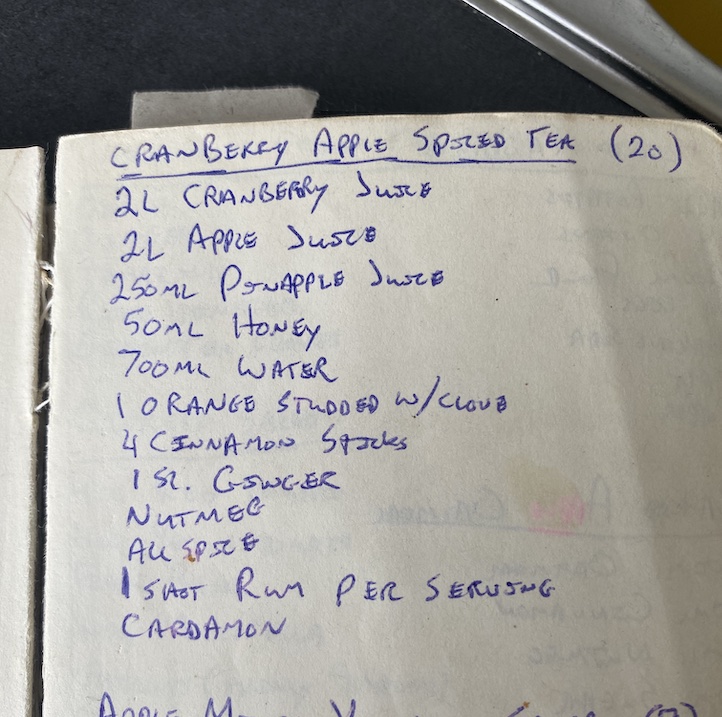 CRANBERRY APPLE SPICED TEA (20)
2L CRANBERRY JUICE
2L APPLE JUICE
250ML PINAPPLE JUICE
50ML HONEY
700ML WATER
1 ORANGE STUDDED W/CLOVE
4 CINNAMON STICKS
1 SL. GINGER
NUTMEG
ALLSPICE
1 SHOT RUM PER SERVING
CARDAMON
APPLE